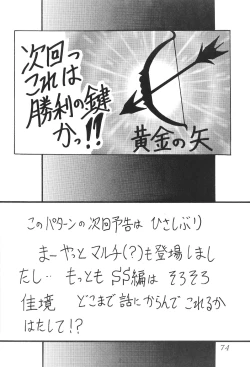 次回っ
これは
勝利の鍵
かっ!!
黄金の矢
このパターンの次回予告は ひさしぶり
まーやっと マルチ(?)も登場しまし
たし‥ もっとも SS編は そろそろ
佳境 どこまで話にからんでこれるか
はたして!?
74